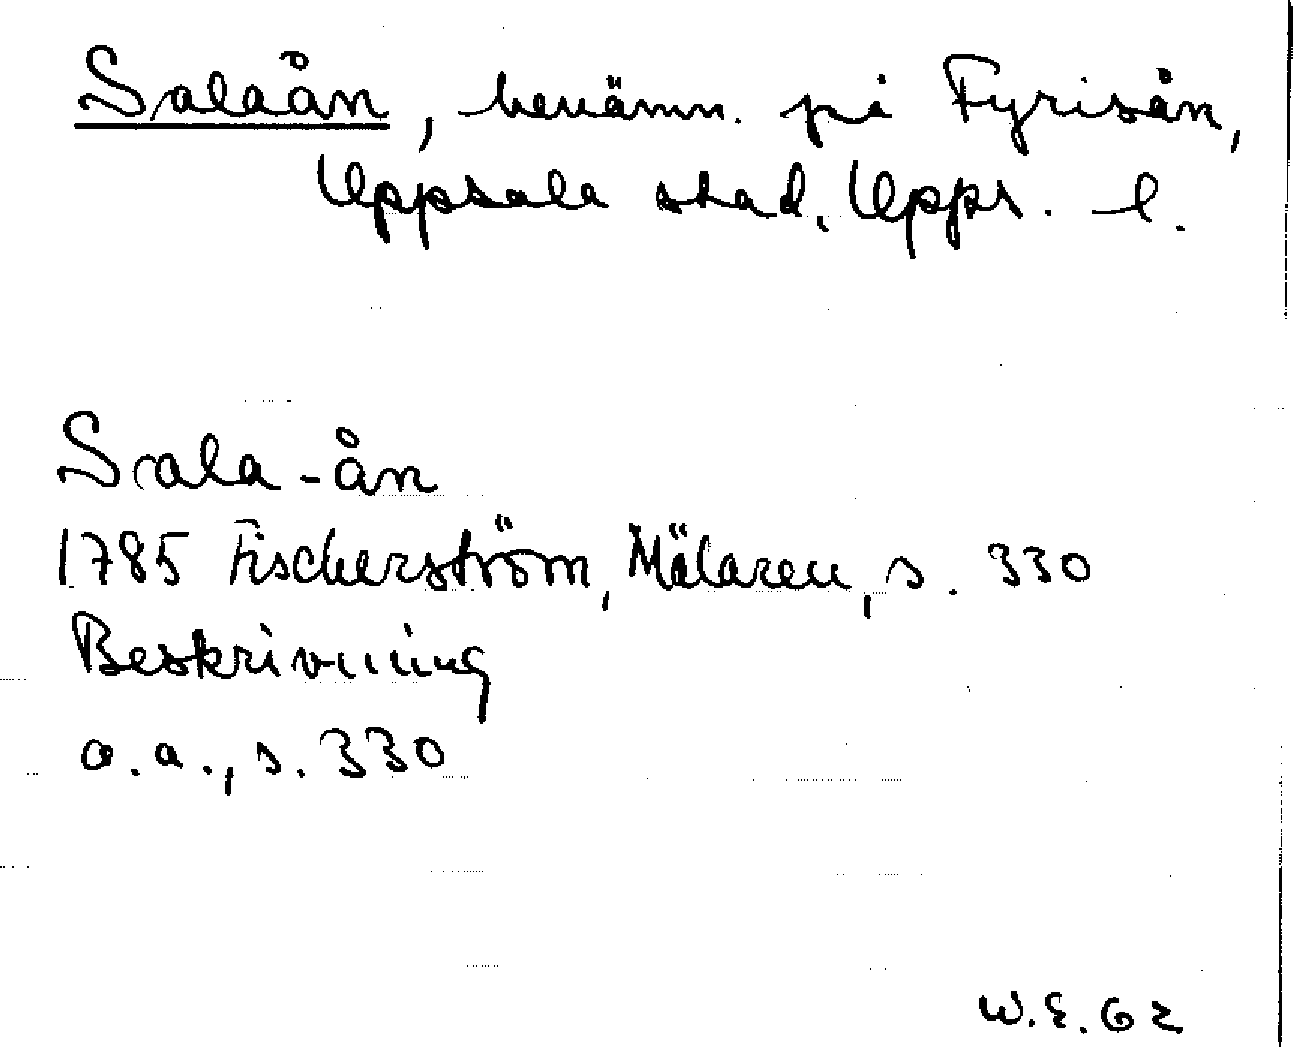 Salaån, benämn. på Fyrisån,
Uppsala stad, Upps. l.
Sala-ån
1785 Fischerström, Mälaren, s. 330
Beskrivning
a.a., s. 330
W.E. 62